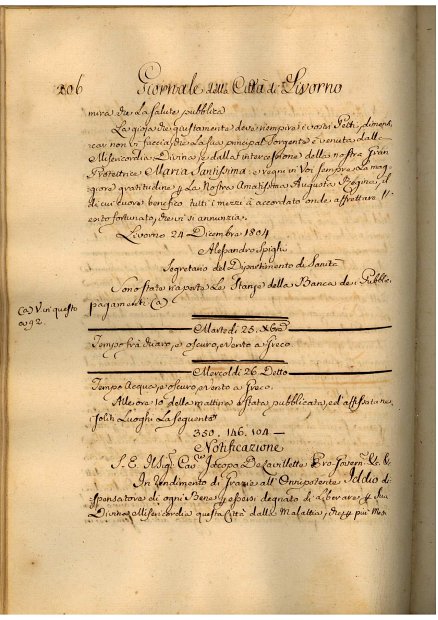 206 Giornale della Città di Livorno
mirà che La Salute pubblica
La gioja che giustamente deve riempire i vostri Petti, di non
cav non vi faccia, che La sua principal Sorgente è venuta dalla
Misericordia Divina, e dalla intercessione della nostra Gran
Protettrice Maria Santissima, e regni in Voi Sempre La mag
giore gratitudine La Nostra Amatissima Augusta Regina, il
di cui cuore benefico tutti i mezzi à accordato onde affrettare
esito fortunato, che vi si annunzia.
Livorno 24 Dicembre 1804
Alessandro Spighi
Segretario del Dipartimento di Sanità
Sono state riaperte Le Stanze della Banca dei Pubbl.
pagamenti (a)
(a) V in questo
a 92.
Martedì 25. Xbre
Tempo frà chiaro, e oscuro, e vento a Greco
Mercoldì 26 Detto
Tempo Acqua, e oscuro, e vento a Greco.
Alle ore 10 della mattina è stata pubblicata, ed affissa ne
soliti Luoghi La seguente
350. 146. 104 —
Notificazione
S. E. Il Sig. Cav. Jacopo De Lavillette Pro-Govern.
In rendimento di Grazie all'Onnipotente Iddio di
spensatore di ogni Bene essersi degnato di Liberare, Sua
Divina Misericordia questa Città dalla Malattia, che più Mes